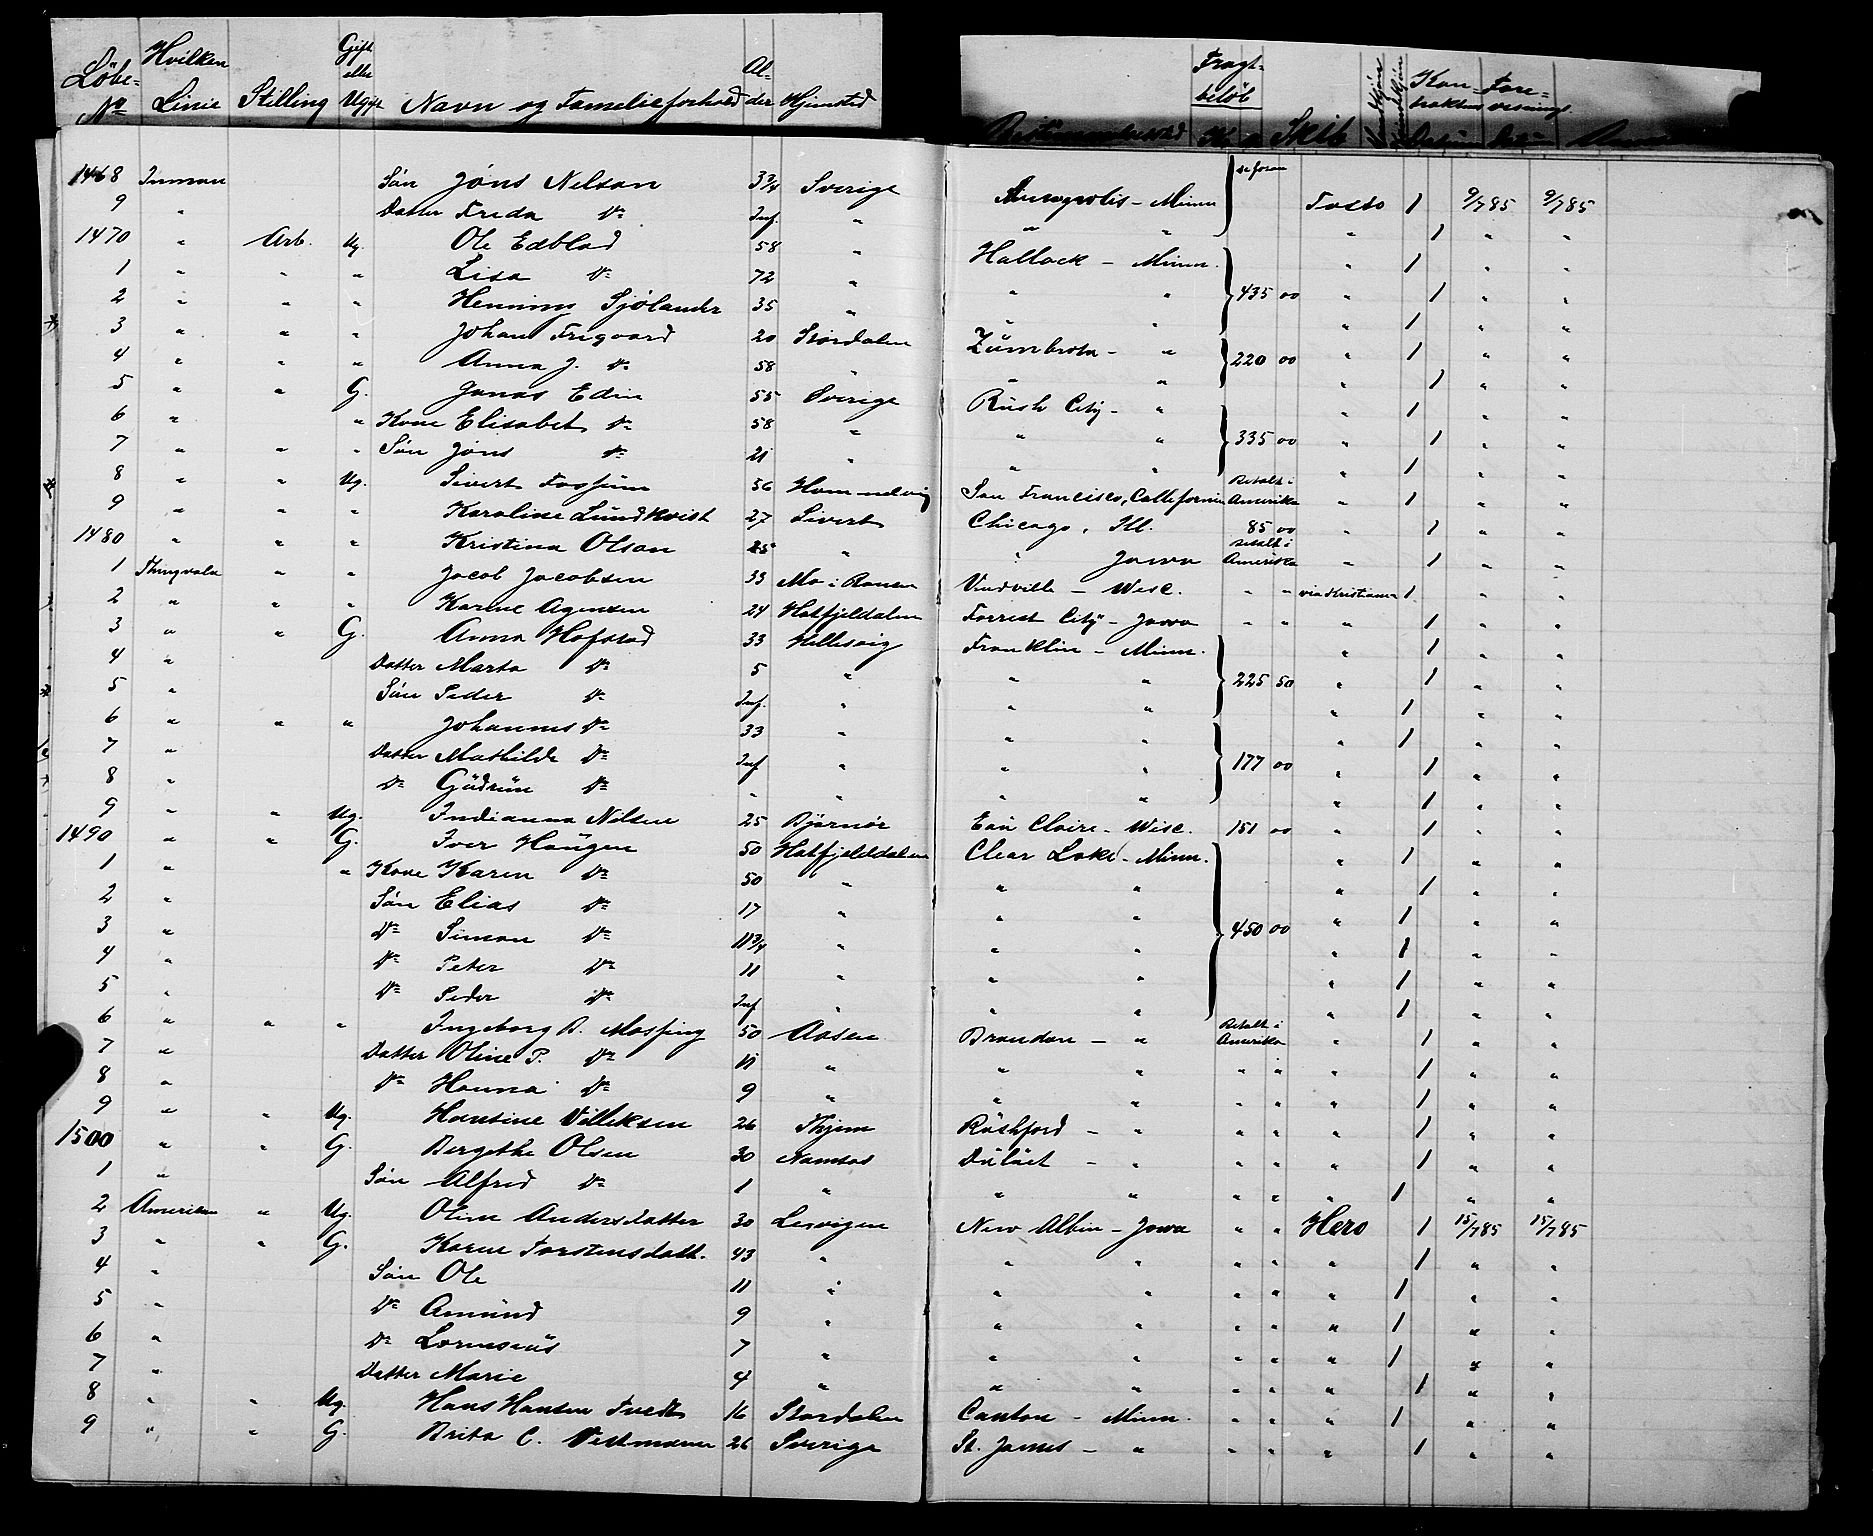 Löbe- No Hvilken Linie Stilling Gift eller Ugift Navn og Familieforhold Alder Hjemsted Bestemmelsessted Fragtbeløb Kr. ø Skib Mandkjøn Kvindekjøn Kontraktens Datum Forevisnings Datum
1468 Inman Søn Jöns Nelson 3 3/4 Sverige Minneapolis - Minn se foran Tasso 1 9/7 85 9/7 85
9 " Datter Freda Do Inf. " " " " 1 " "
1470 " Arb. Ug Ole Edblad 58 " Hallock - Minn. " 1 " "
1 " " " Lisa Do 72 " " " 435 00 " 1 " "
2 " " " Henning Sjölander 35 " " " " 1 " "
3 " " " Johan Frigaard 20 Stordalen Zumbrota - " 220 00 " 1 " "
4 " " " Anna J. Do 58 " " " " 1 " "
5 " " G. Jonas Edin 55 Sverige Rush City - " " 1 " "
6 " " Kone Elisabet Do 58 " " " 335 00 " 1 " "
7 " " " Søn Jöns Do 21 " " " " 1 " "
8 " " Ug. Sivert Fossum 56 Hommelvig San Francisco, Californien Betalt i Amerika " 1 " "
9 " " " Karoline Lundkvist 27 Chicago, Ill. 85 00 " 1 " "
1480 " " " Kristina Olson 25 " " Jowa Betalt i Amerika " 1 " "
1 Thingvala " " Jacob Jacobsen 33 Mo i Ranen - Wisc. " " via Kristiania 1 " "
2 " " " Karine Agensen 24 Hatfjeldalen Forrest City - Jowa " " " 1 " "
3 " " G. Anna Hofstad 33 Hellesvig Franklin - Minn. " 1 " "
4 " Datter Marta Do 5 " " " 225 50 " 1 " "
5 " Søn Peder Do Inf. " " " " 1 " "
6 " " " Johannes Do 33 " " " " 1 " "
7 " Datter Mathilde Do Inf " " " 177 00 " 1 " "
8 " Do Gudrun Do " " " " " 1 " "
9 " " Ug. Indianna Nilsen 25 Bjørnør Eau Claire - Wisc. 151 00 " 1 " "
1490 " " G. Iver Haugen 50 Hatfjelddalen Clear Lake - Minn. " 1 " "
1 " " Kone Karen Do 50 " " " " 1 " "
2 " Søn Elias Do 17 " " " " 1 " "
3 " Do Simon Do 11 3/4 " " " 450 00 " 1 " "
4 " Do Peter Do 11 " " " " 1 " "
5 " Do Peder Do Inf " " " " 1 " "
6 " " " Ingeborg B. Mosfing 50 Aasen Brandon - " Betalt i Amerika " 1 " "
7 " Datter Oline P. Do 11 " " " " " " 1 " "
8 " Do Hanna Do 9 " " " " " " 1 " "
9 " " Ug. Hantine Villiksen 26 Rushford - " " " " 1 " "
1500 " " G. Bergethe Olsen 30 Namsos Duluet - " " " " 1 " "
1 " Søn Alfred Do 1 " " " " " " 1 " "
2 Amerikan " Ug. Oline Andersdatter 30 Lesvigen New Albin - Jowa " " Hero 1 15/7 85 15/7 85
3 " " G. Karen Torstensdatt. 43 " " " " " " 1 " "
4 " Søn Ole 11 " " " " " " 1 " "
5 " Do Amund 9 " " " " " " 1 " "
6 " Do 7 " " " " " " 1 " "
7 " Datter Marie 4 " " " " " " 1 " "
8 " " Ug. Hans Hansen Tvedt 16 Stordalen Canton - Minn. " " " 1 " "
9 " " G. Brita C. 26 Sverige St. James - " " " " 1 " "